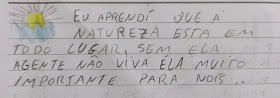 EU APRENDÍ QUE A
NATUREZA ESTA EM
TODO LUGAR, SEM ELA
AGENTE NÃO VIVA ELA MUITO
IMPORTANTE PARA NOIS...